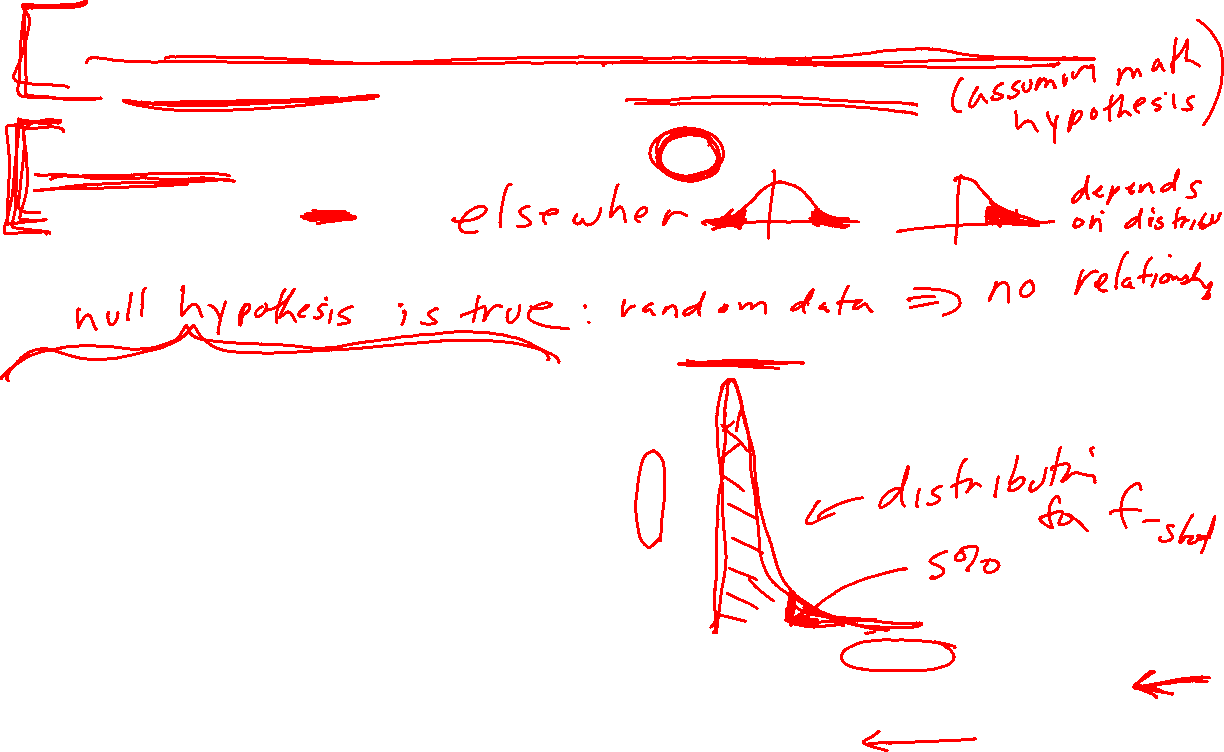 (assumin math
hypothesis)
elsewher
depends
on distribu
null hypothesis is true : random data => no relationship
distribution
for f-stat
5%